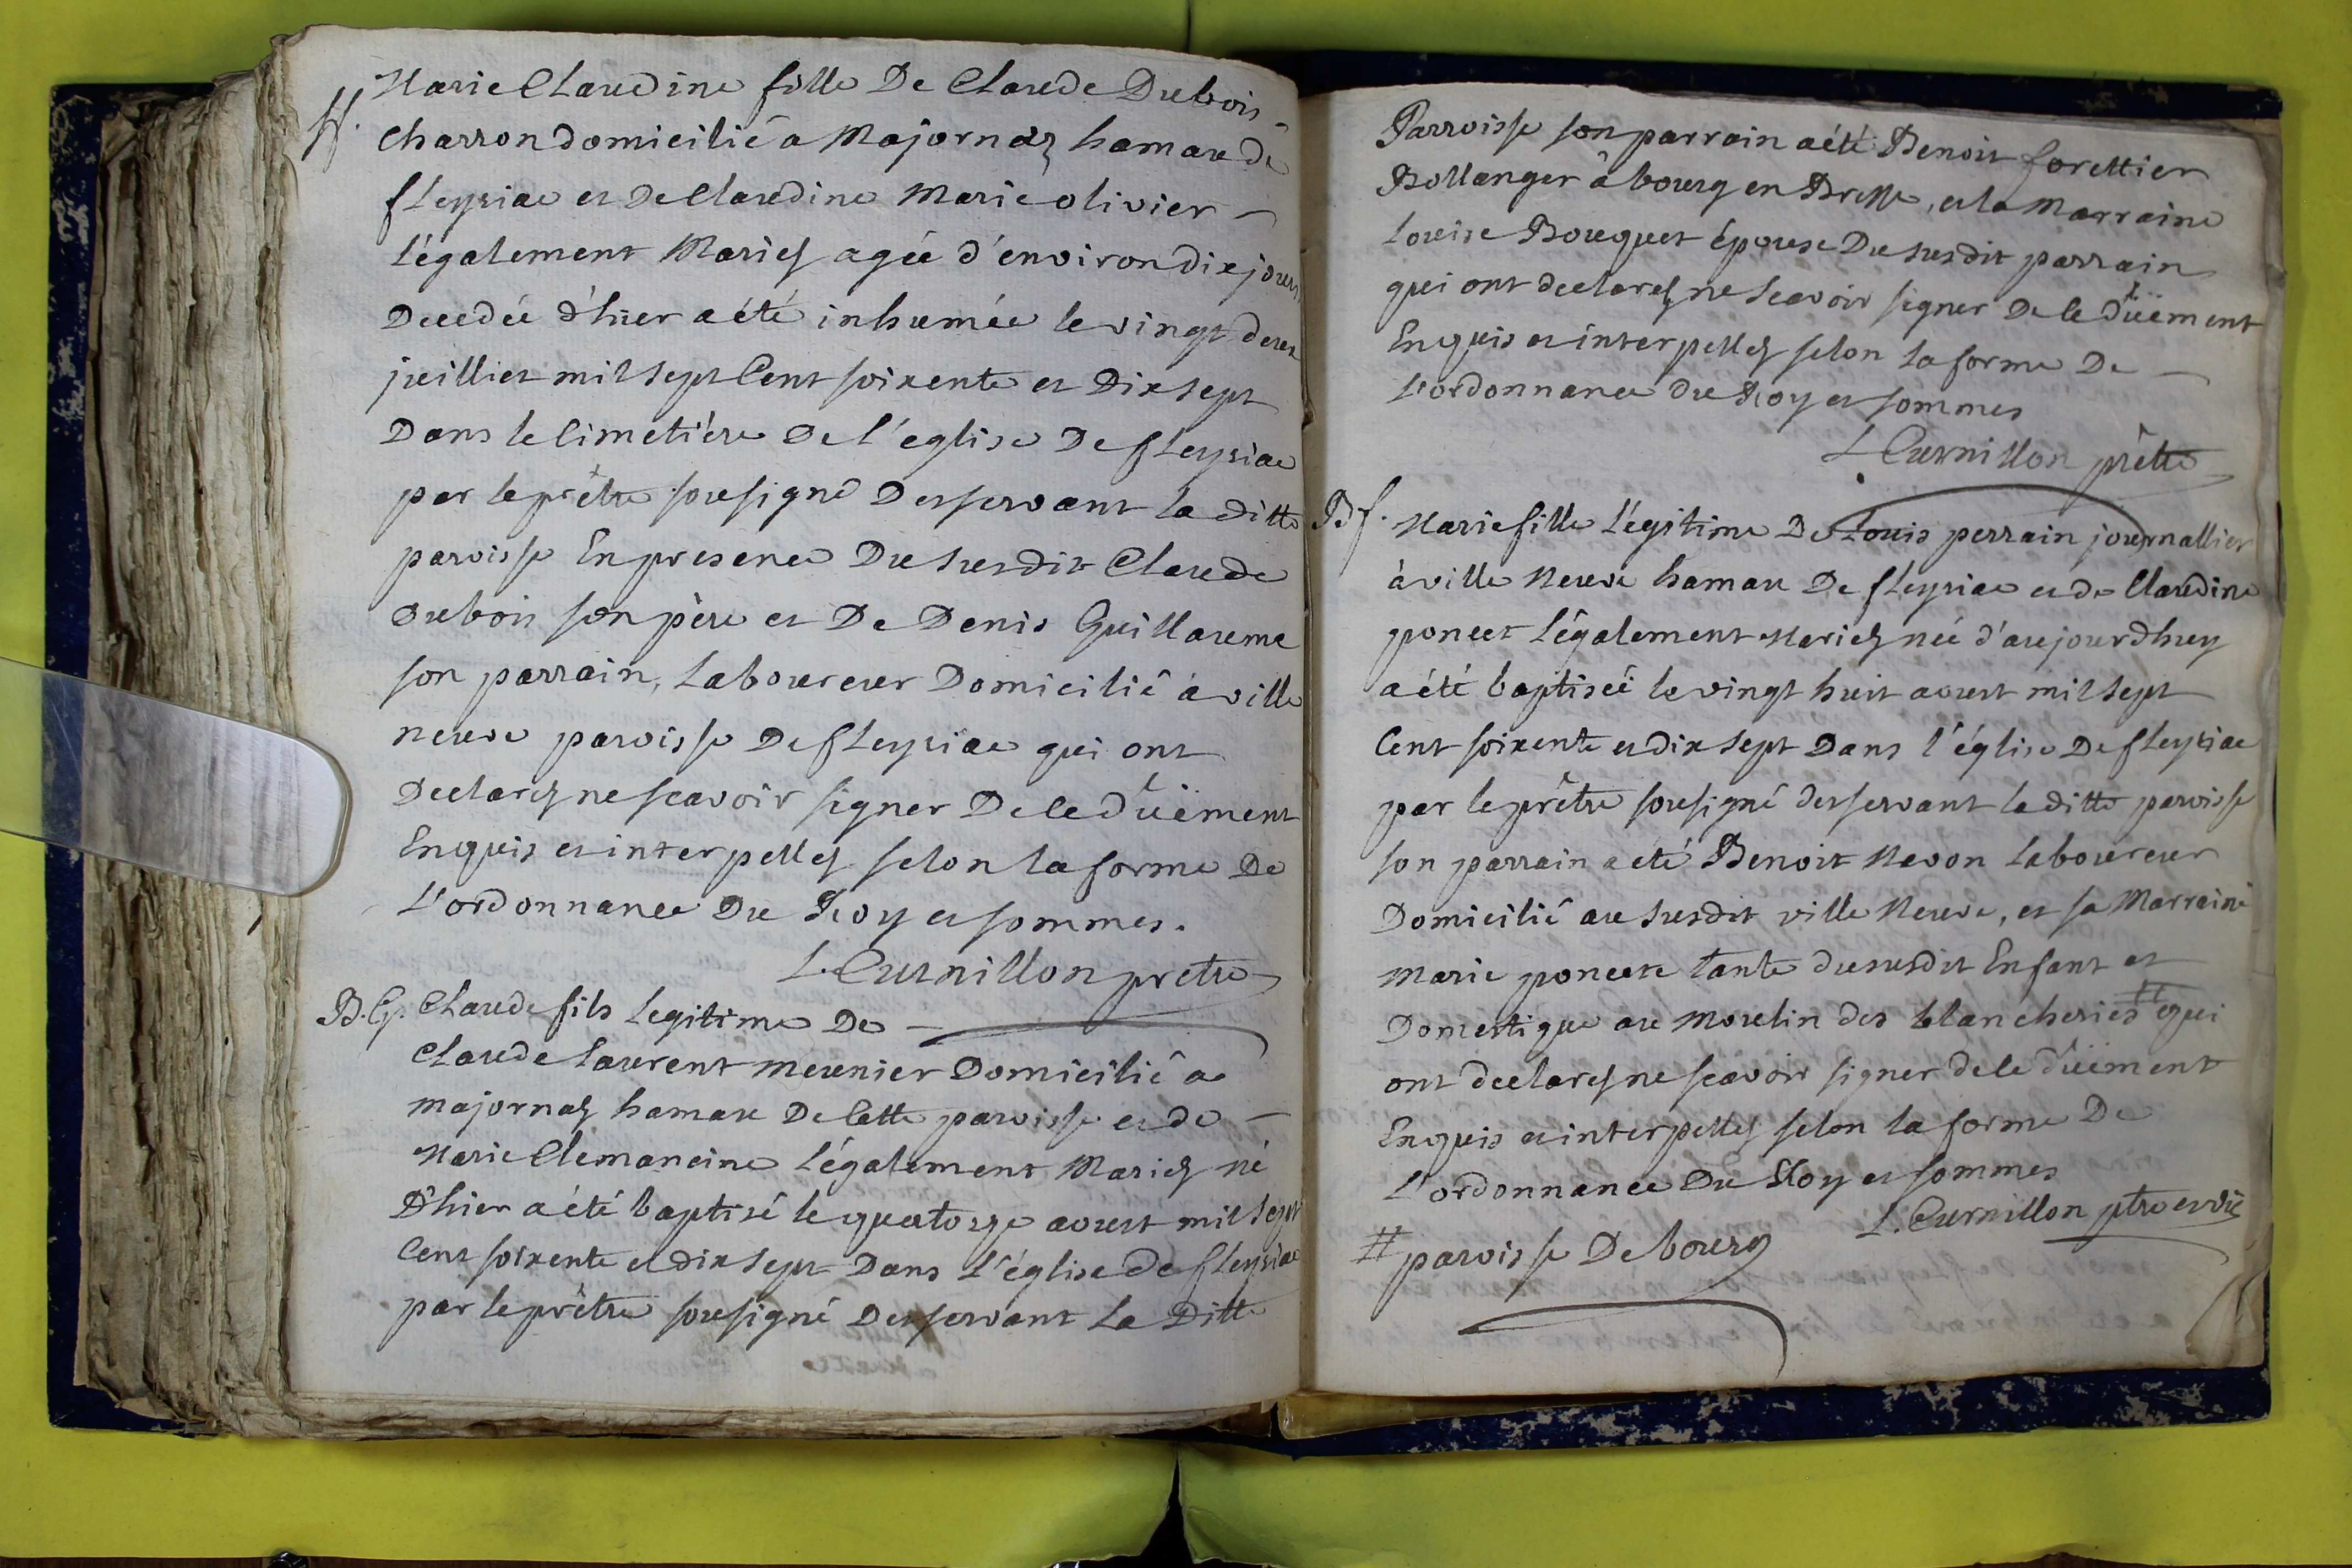 Marie Claudine fille De Claude Dubois -
S f. Charron domicilié a Majornaz hamau de
fleyriac et De Claudine Marie olivier -
légalement Mariez agée d'environ dix jours
Decedée d'hier a été inhumée le vingt deux
juilliet mil sept Cent soixente et Dix sept
Dans le Cimetière De l'eglise De fleyriac
par le prêtre sousigné Desservant la ditte
paroisse En presence Du susdit Claude
dubois son père et De Denis Guillaume
son parrain, Laboureur Domicilié à ville
neuve paroisse De fleyriac qui ont
Declarez ne scavoir signer De ce dûëment
Enquis et interpellez selon la forme De
L'ordonnance Du Roy et sommes.
L. Curnillon prêtre
B. G. Claude fils Legitime De -
Claude Laurent meunier Domicilié a
majornaz hamau De Cette paroisse et de -
Marie Clemancine légalement Mariez né
D'hier a été baptisé le quatorze aoust mil sept
Cent soixente et dix sept Dans L'église de fleyriac
par le prêtre sousigné Desservant La Ditte
Parroisse son parrain a été Benoit forettier
Bollanger à bourg en Bresse, et la Marraine
Louise Bouquet épouse Du susdit parrain
qui ont declarez ne scavoir signer De ce dûëment
Enquis et interpellez selon la forme De -
l'ordonnance du Roy et sommes
L. Curnillon prêtre
B f. Marie fille légitime De Louis perrain journallier
à ville Neuve hamau De fleyriac et de Claudine
poncet légalement Mariez née d'aujourdhuy
a été baptiseé le vingt huit aoust mil sept
Cent soixente et dix sept Dans l'église De fleyriac
par le prêtre sousigné desservant la ditte paroisse
son parrain a eté Benoit Nevon laboureur
Domicilié au susdit ville Neuve, et sa Marraine
Marie poncet tante du susdit Enfant et
Domestique au Moulin des blancheries # qui
ont declarez ne scavoir signer de ce dûëment
Enquis et interpellez selon la forme De
l'ordonnance Du Roy et sommes
L. Curnillon ptre et vic
# paroisse De bourg